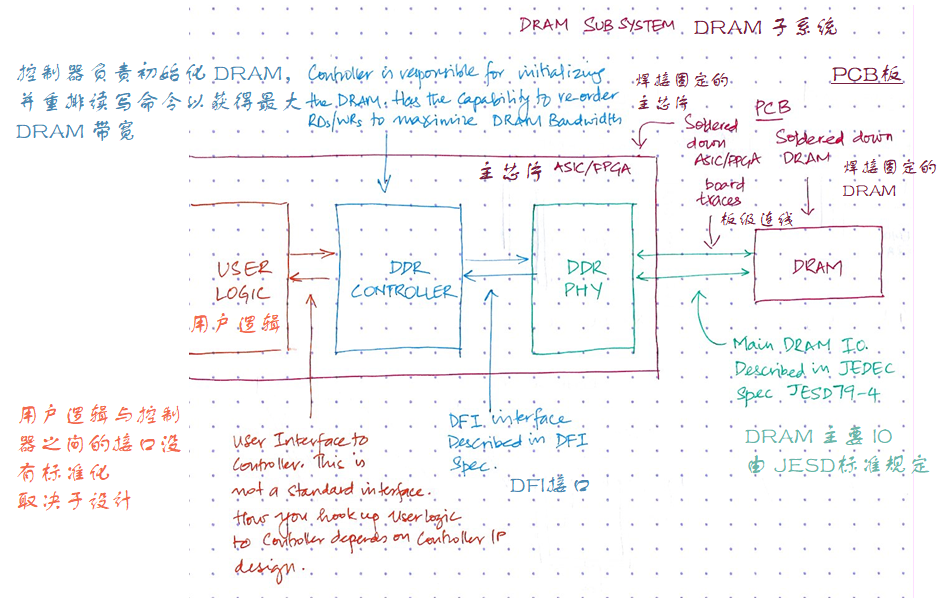 DRAM SUBSYSTEM DRAM 子系统
控制器负责初始化 DRAM，
并重排读写命令以获得最大
DRAM 带宽
Controller is responsible for initializing
the DRAM. Has the capability to re-order
RDs/WRs to maximize DRAM Bandwidth
焊接固定的
主芯片
PCB板
PCB
Soldered
down
ASIC/FPGA
Soldered down
DRAM
焊接固定的
DRAM
board
traces
板级连线
主芯片 ASIC/FPGA
USER
LOGIC
用户逻辑
DDR
CONTROLLER
DDR
PHY
DRAM
Main DRAM I.O.
Described in JEDEC
Spec JESD79-4
DRAM 主要 IO
由 JESD标准规定
用户逻辑与控制
器之间的接口没
有标准化
取决于设计
User Interface to
Controller. This is
not a standard interface.
How you hook up User logic
to Controller depends on Controller IP
design.
DFI interface
Described in DFI
Spec.
DFI接口